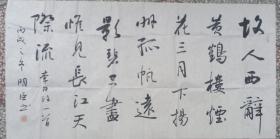 故人西辭
黃鶴樓煙
花三月下揚
州孤帆遠
影碧空盡
惟見長江天
際流 李白詩一首
丙戌之年 明